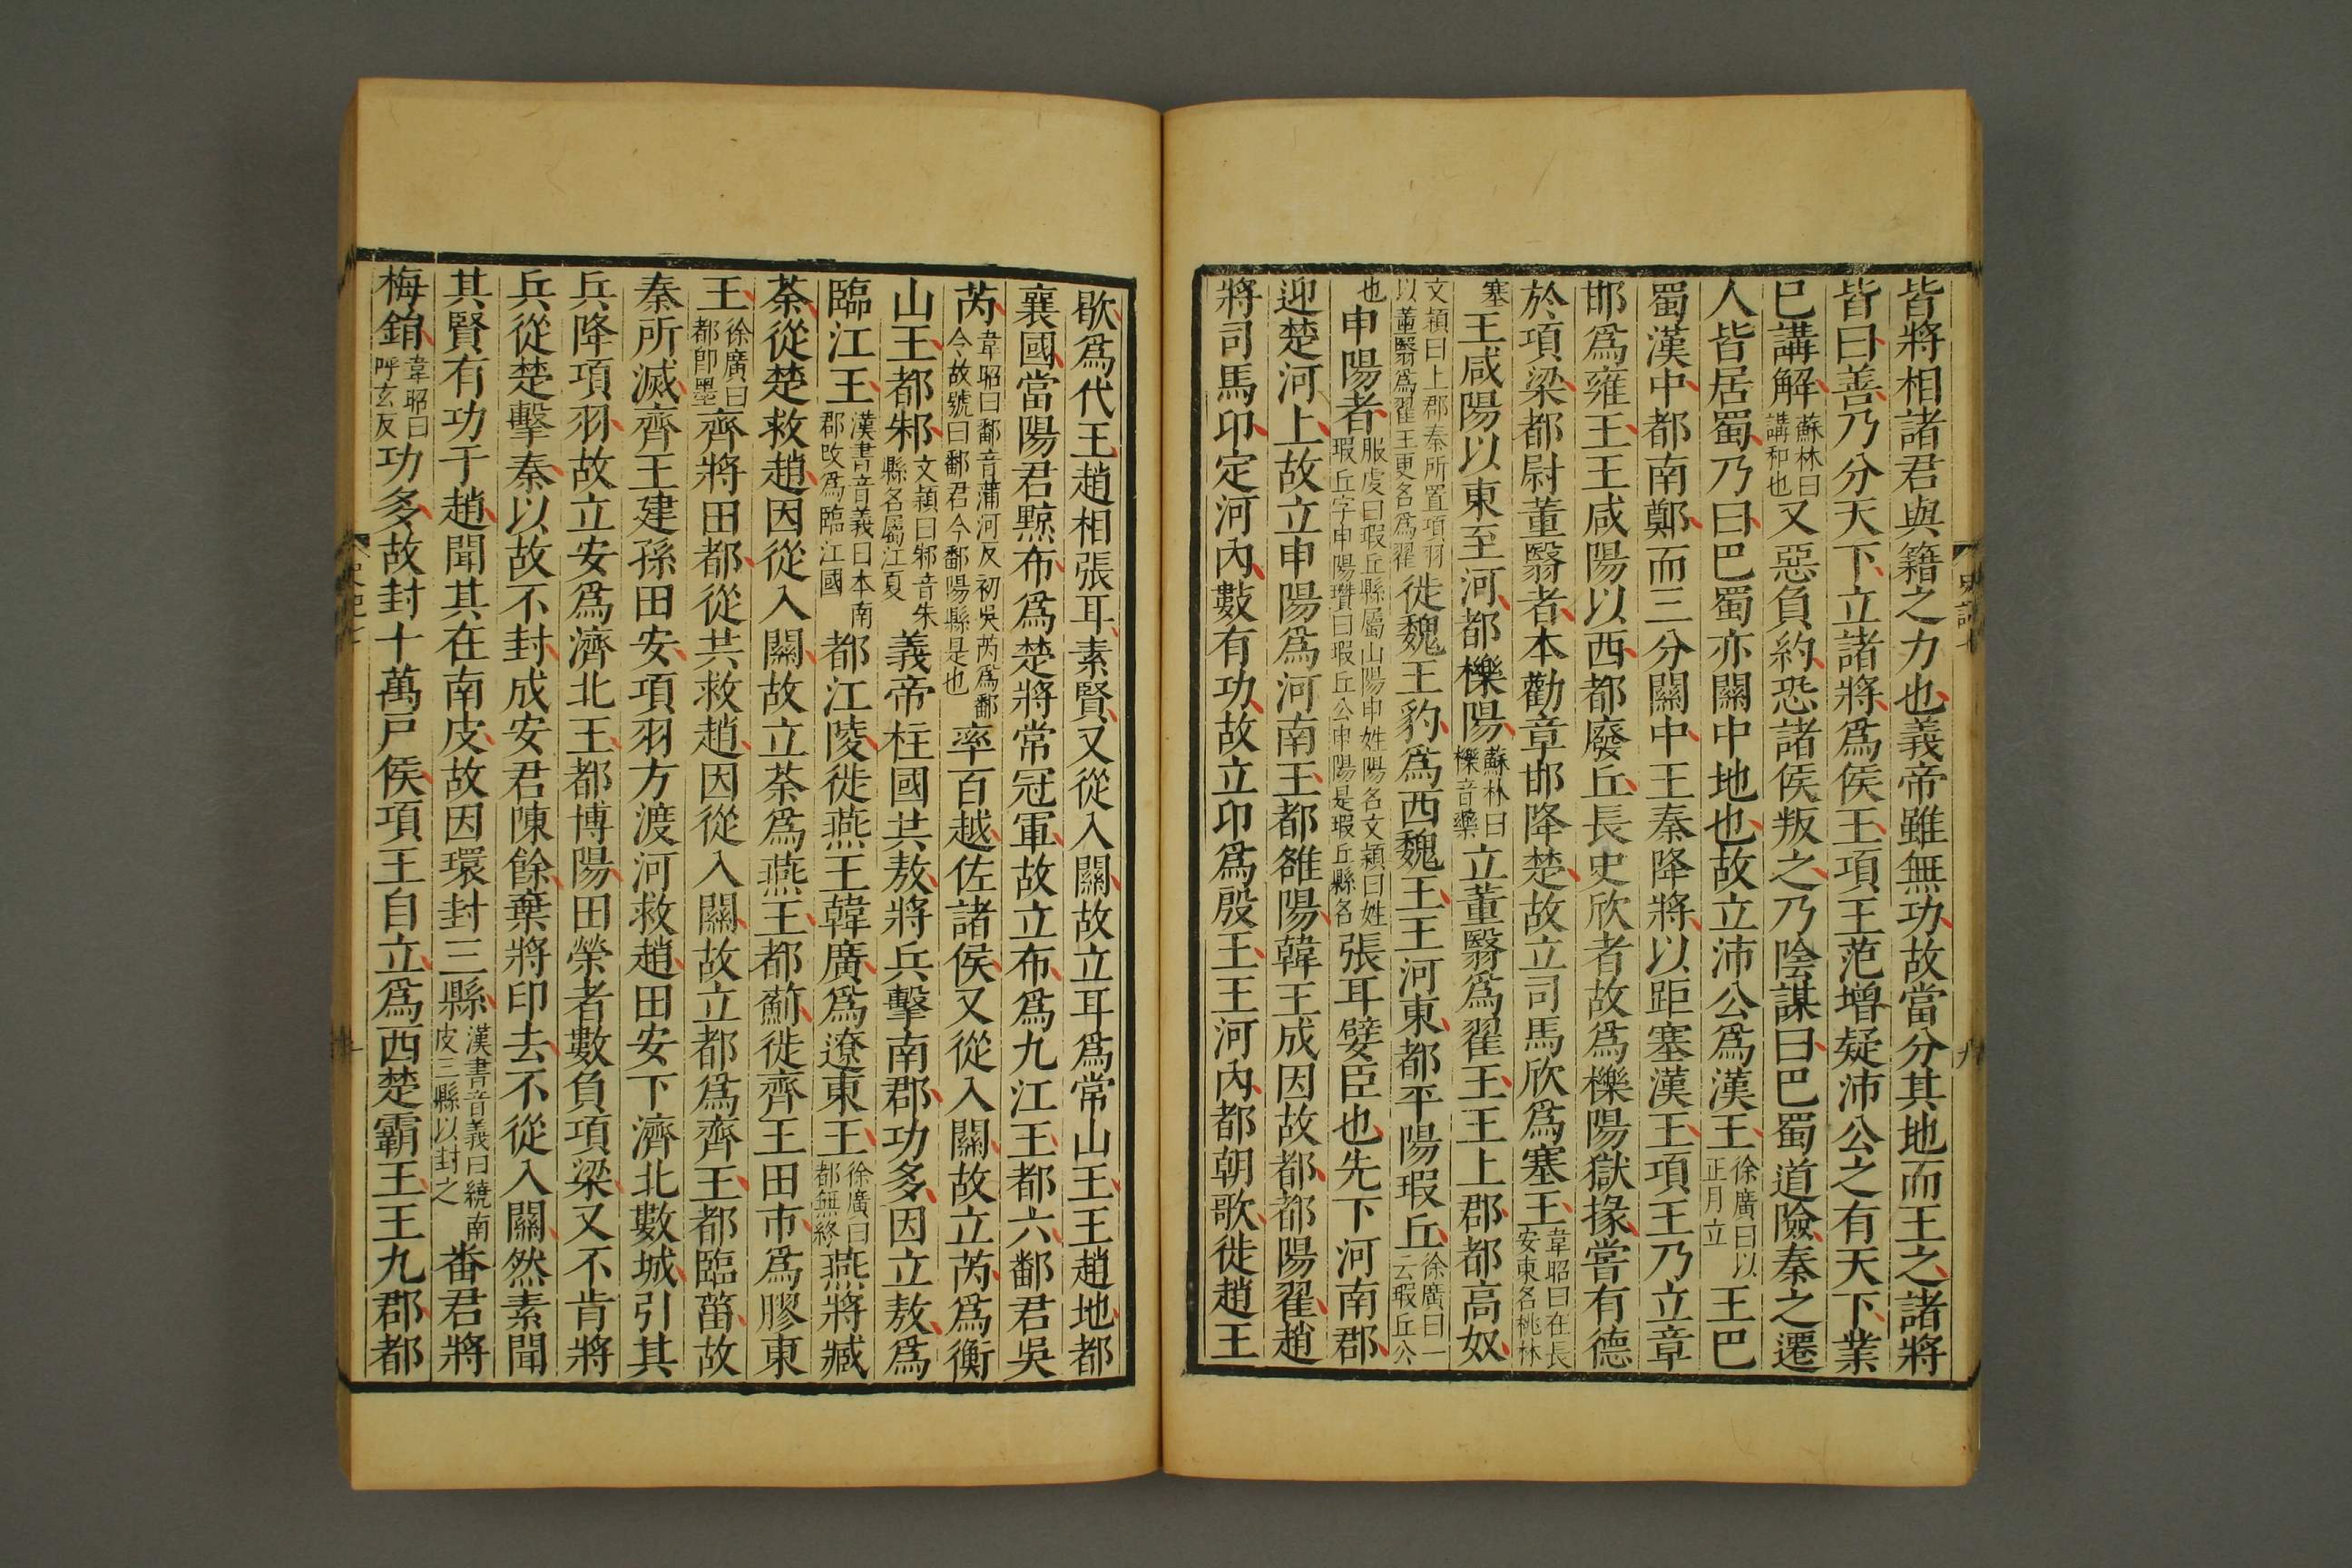 皆將相諸君與籍之力也義帝雖無功故當分其地而王之諸將
皆曰善乃分天下立諸將爲侯王項王范增疑沛公之有天下業
巳講解蘇林曰講和也又惡負約恐諸侯叛之乃陰謀曰巴蜀道險秦之遷
人皆居蜀乃曰巴蜀亦關中地也故立沛公爲漢王徐廣曰以正月立王巴
蜀漢中都南鄭而三分關中王秦降將以距塞漢王項王乃立章
邯爲雍王王咸陽以西都廢丘長史欣者故爲櫟陽獄掾嘗有德
於項梁都尉董翳者本勸章邯降楚故立司馬欣爲塞王韋昭曰在長安東名桃林
塞王咸陽以東至河都櫟陽蘇林曰櫟音藥立董翳爲翟王王上郡都高奴
文穎曰上郡秦所置項羽以董翳爲翟王更名爲翟徙魏王豹爲西魏王王河東都平陽瑕丘徐廣曰一云瑕丘公
也申陽者服虔曰瑕丘縣屬山陽申姓陽名文穎曰姓瑕丘字申陽瓚曰瑕丘公申陽是瑕丘縣名張耳嬖臣也先下河南郡
迎楚河上故立申陽爲河南王都雒陽韓王成因故都都陽翟趙
將司馬卬定河內數有功故立卬爲殷王王河內都朝歌徙趙王
史記七
九
歇爲代王趙相張耳素賢又從入關故立耳爲常山王王趙地都
襄國當陽君黥布爲楚將常冠軍故立布爲九江王都六鄱君吳
芮韋昭曰鄱音蒲河反初吳芮爲鄱令故號曰鄱君今鄱陽縣是也率百越佐諸侯又從入關故立芮爲衡
山王都邾文穎曰邾音朱縣名屬江夏義帝柱國共敖將兵擊南郡功多因立敖爲
臨江王漢書音義曰本南郡改爲臨江國都江陵徙燕王韓廣爲遼東王徐廣曰都無終燕將臧
荼從楚救趙因從入關故立荼爲燕王都薊徙齊王田市爲膠東
王徐廣曰都卽墨齊將田都從共救趙因從入關故立都爲齊王都臨菑故
秦所滅齊王建孫田安項羽方渡河救趙田安下濟北數城引其
兵降項羽故立安爲濟北王都博陽田榮者數負項梁又不肯將
兵從楚擊秦以故不封成安君陳餘棄將印去不從入關然素聞
其賢有功于趙聞其在南皮故因環封三縣漢書音義曰繞南皮三縣以封之番君將
梅鋗韋昭曰呼玄反功多故封十萬戶侯項王自立爲西楚霸王王九郡都